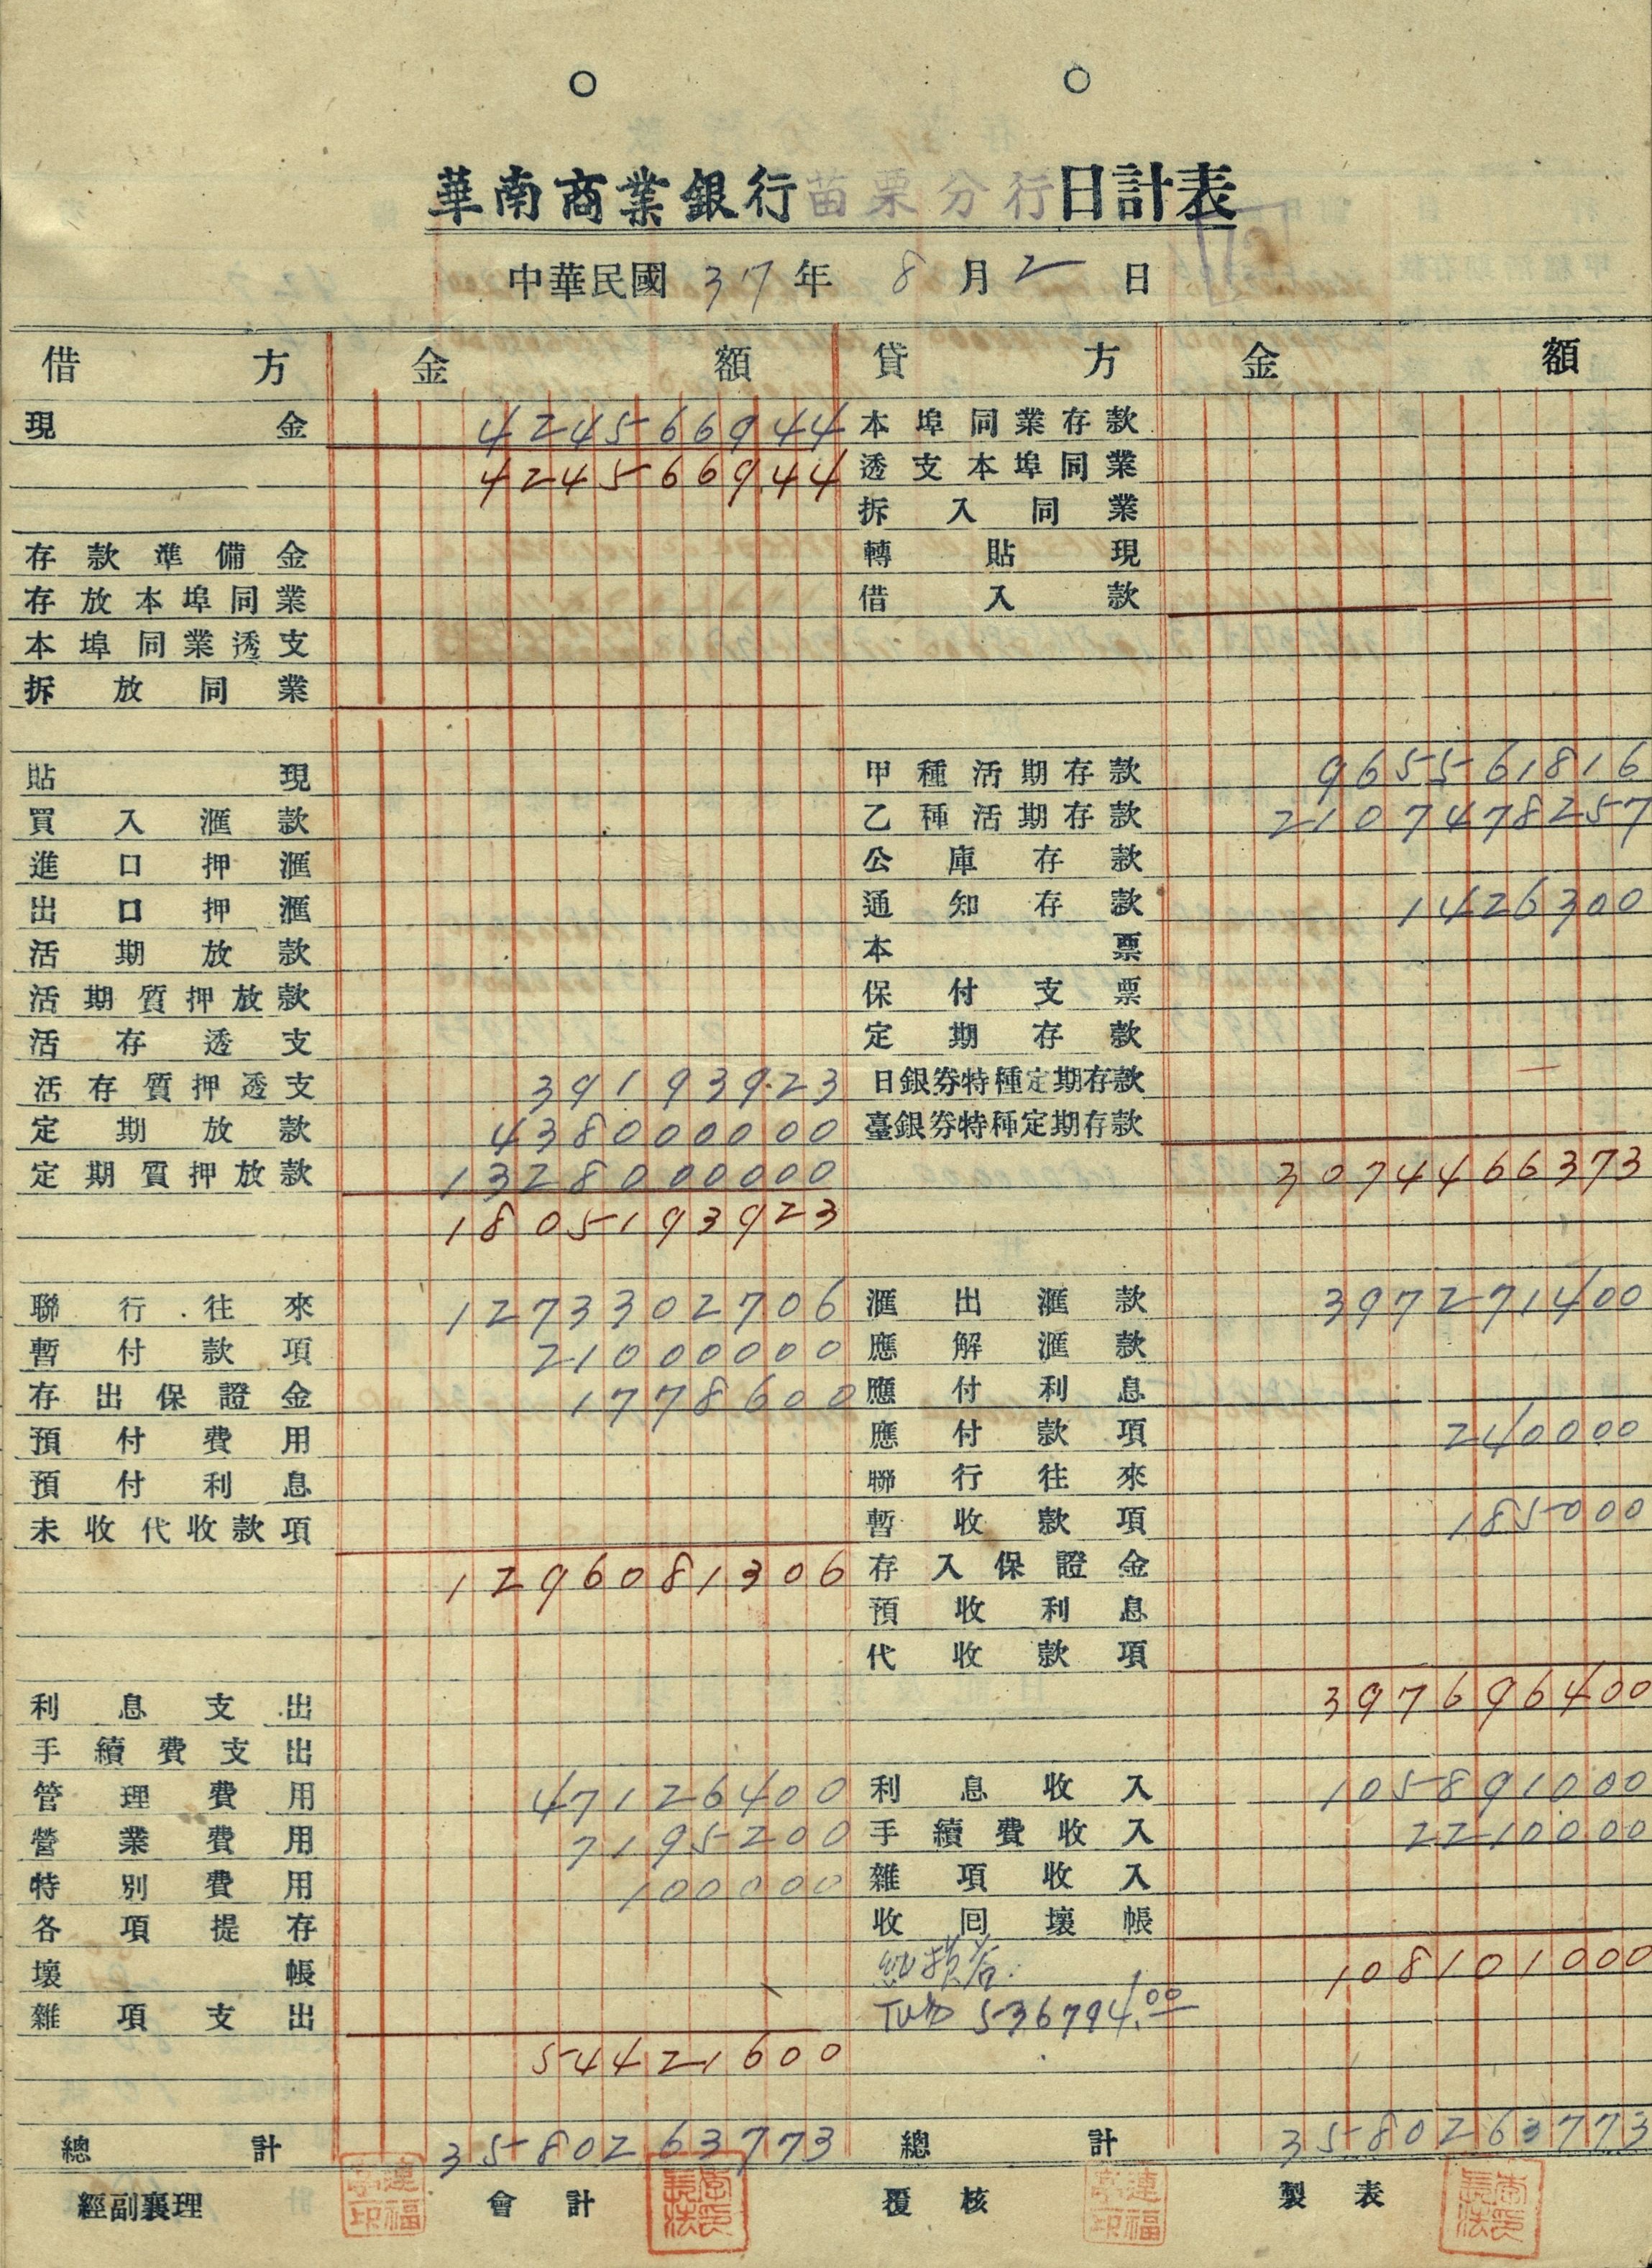 華南商業銀行苗栗分行日計表
中華民國 37 年 8 月 2 日
借方 金額 貸方 金額
現金 424566944 本埠同業存款
424566944 透支本埠同業
拆入同業
存款準備金 轉貼現
存放本埠同業 借入款
本埠同業透支
拆放同業
貼現 甲種活期存款 965561816
買入滙款 乙種活期存款 2107478257
進口押滙 公庫存款
出口押滙 通知存款 1426300
活期放款 本票
活期質押放款 保付支票
活存透支 定期存款
活存質押透支 39193923 日銀券特種定期存款
定期放款 438000000 臺銀券特種定期存款
定期質押放款 1328000000 3074466373
1805193923
聯行往來 1273302706 滙出滙款 397271400
暫付款項 21000000 應解滙款
存出保證金 1778600 應付利息
預付費用 應付款項 240000
預付利息 聯行往來
未收代收款項 暫收款項 185000
1296081306 存入保證金
預收利息
代收款項
利息支出 397696400
手續費支出
管理費用 47126400 利息收入 105891000
營業費用 7195200 手續費收入 2210000
特別費用 100000 雜項收入
各項提存 收回壞帳
壞帳 純損益: 108101000
雜項支出 TWD 536794.00
54421600
總計 3580263773 總計 3580263773
經副襄理 會計 覆核 製表